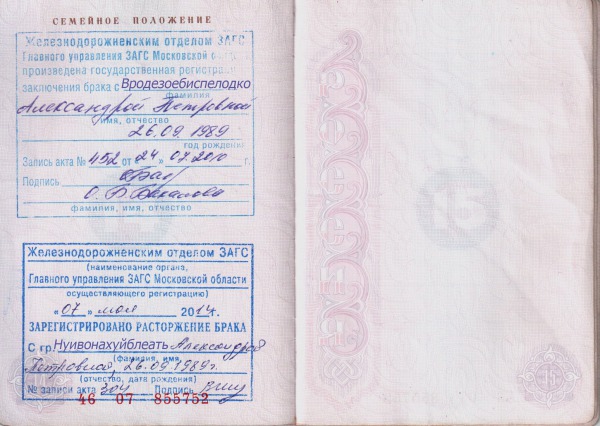 СЕМЕЙНОЕ ПОЛОЖЕНИЕ
Железнодорожненским отделом ЗАГС
Главного управления ЗАГС Московской
произведена государственная регистрац
заключения брака с Вродезоебиспелодко
фамилия
Александрой Петровной
имя, отчество
26.09.1989
год рождения
Запись акта № 452 от "24" 07.2010 г.
Подпись
фамилия, имя, отчество
15
Железнодорожненским отделом ЗАГС
(наименование органа,
Главного управления ЗАГС Московской области
осуществляющего регистрацию)
"07" мая 2014г.
ЗАРЕГИСТРИРОВАНО РАСТОРЖЕНИЕ БРАКА
С гр. Нуивонахуйблеать Александрой
(фамилия, имя,
Петровной, 26.09.1989г.
(отчество, дата рождения)
№ записи акта 304 Подпись
46 07 855752
15